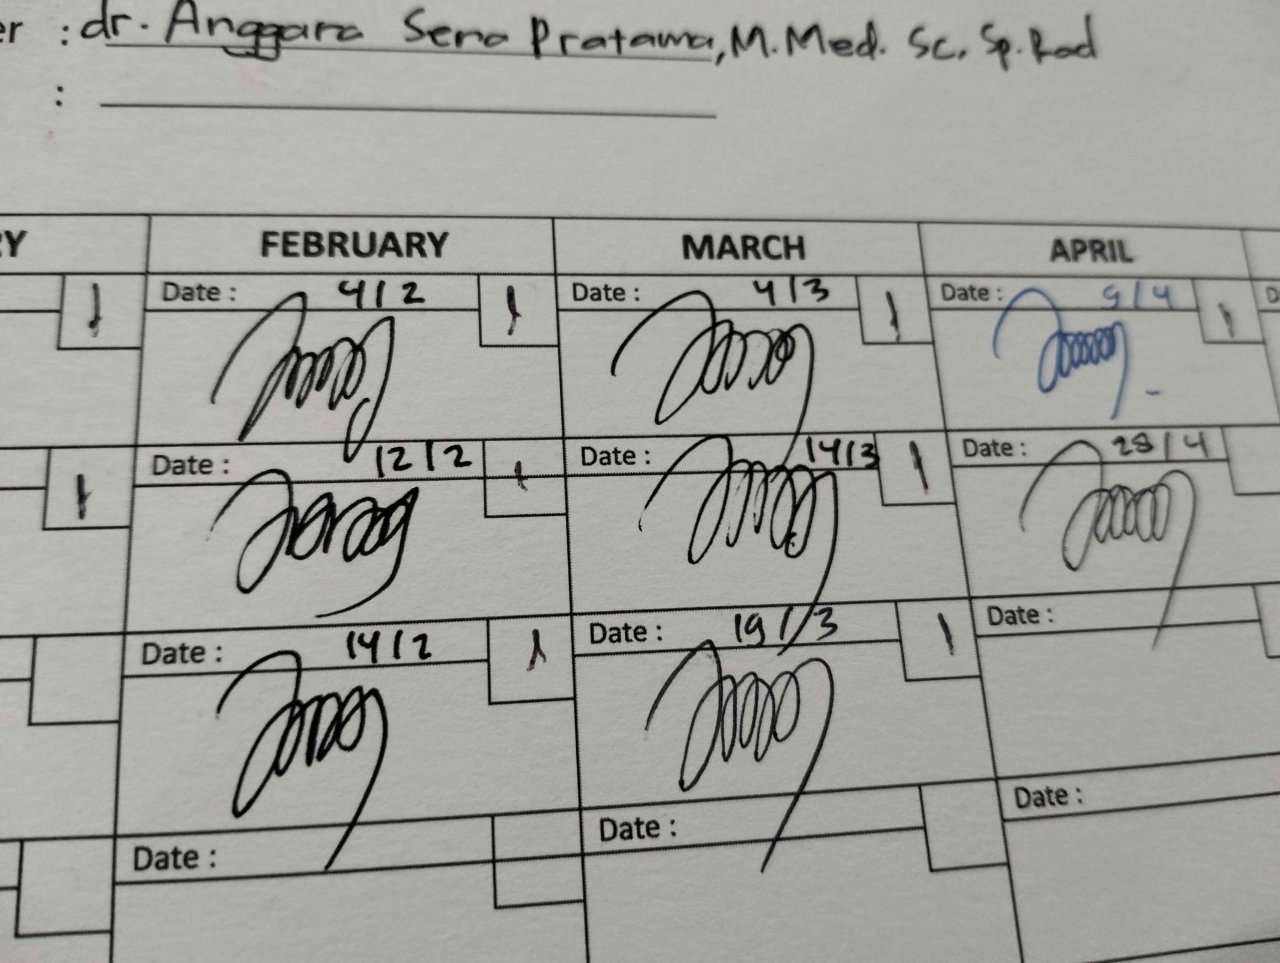 er : dr. Anggara Sena Pratama, M.Med. Sc, Sp.Rad
:
RY FEBRUARY MARCH APRIL
1 Date : 4/2 1 Date : 4/3 1 Date : 9/4 1 D
1 Date : 12/2 1 Date : 14/3 1 Date : 28/4
Date : 14/2 1 Date : 19/3 1 Date :
Date : Date : Date :